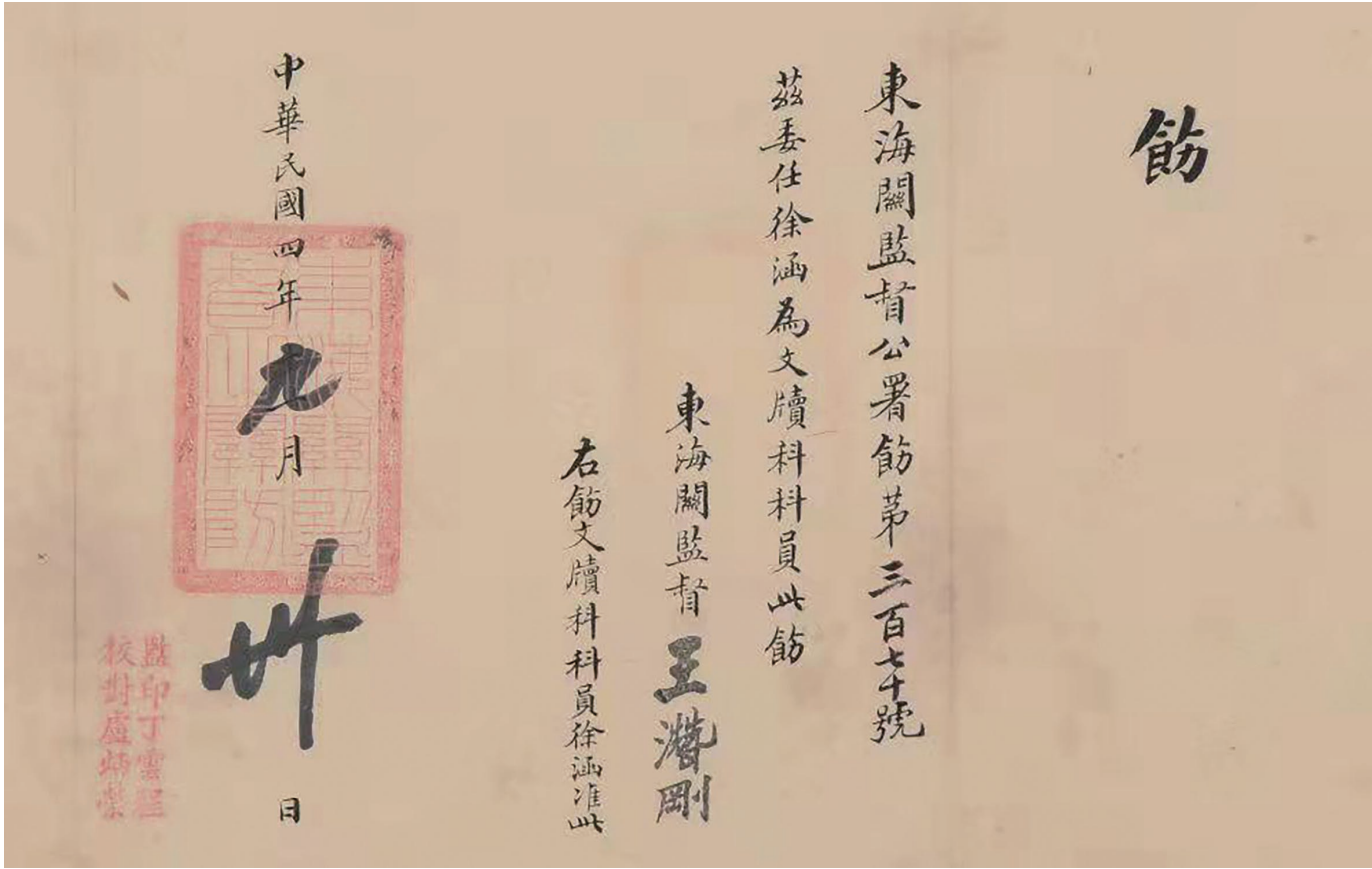 飭
東海關監督公署飭第三百七十號
茲委任徐涵為文牘科科員此飭
東海關監督王潛剛
右飭文牘科科員徐涵准此
中華民國四年九月卅日
監印丁雲
校對盧炳榮